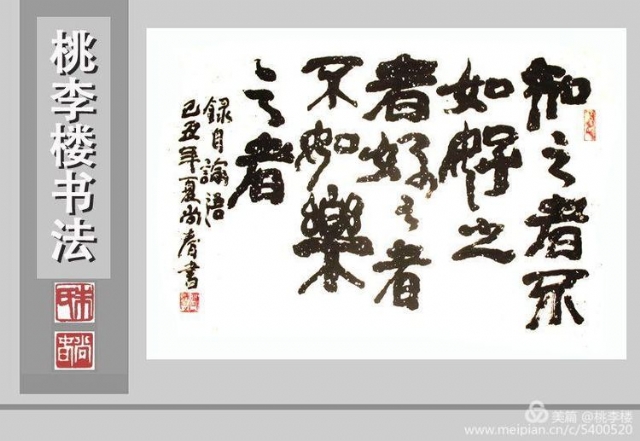 桃李楼书法
知之者不
如好之
者好之者
不如樂
之者
録自論語
己丑年夏尚書
美篇 @桃李楼
www.meipian.cn/c/5400520